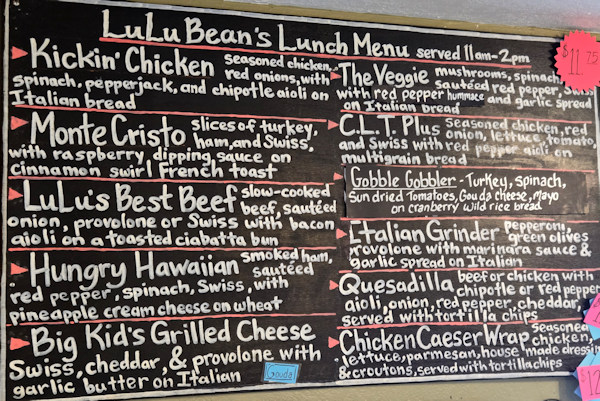 LuLu Bean's Lunch Menu served 11am-2pm
Kickin' Chicken seasoned chicken,
red onions, with
spinach, pepperjack, and chipotle aioli on
Italian bread
Monte Cristo slices of turkey,
ham, and Swiss,
with raspberry dipping sauce on
cinnamon swirl French toast
LuLu's Best Beef slow-cooked
beef, sautéed
onion, provolone or Swiss with bacon
aioli on a toasted ciabatta bun
Hungry Hawaiian smoked ham,
sautéed
red pepper, spinach, Swiss, with
pineapple cream cheese on wheat
Big Kid's Grilled Cheese
Swiss, cheddar, & provolone with
garlic butter on Italian
Gouda
The Veggie mushrooms, spinach,
sautéed red pepper,
with red pepper hummace and garlic spread
on Italian bread
C.L.T. Plus seasoned chicken, red
onion, lettuce, tomato,
and Swiss with red pepper aioli on
multigrain bread
Gobble Gobbler - Turkey, spinach,
Sun dried Tomatoes, Gouda cheese, Mayo
on cranberry wild rice bread
Italian Grinder pepperoni,
green olives
provolone with marinara sauce &
garlic spread on Italian
Quesadilla beef or chicken with
chipotle or red pepper
aioli, onion, red pepper, cheddar,
served with tortilla chips
Chicken Caeser Wrap seasoned
chicken,
lettuce, parmesan, house made dressing
& croutons, served with tortilla chips
$11.75
$12